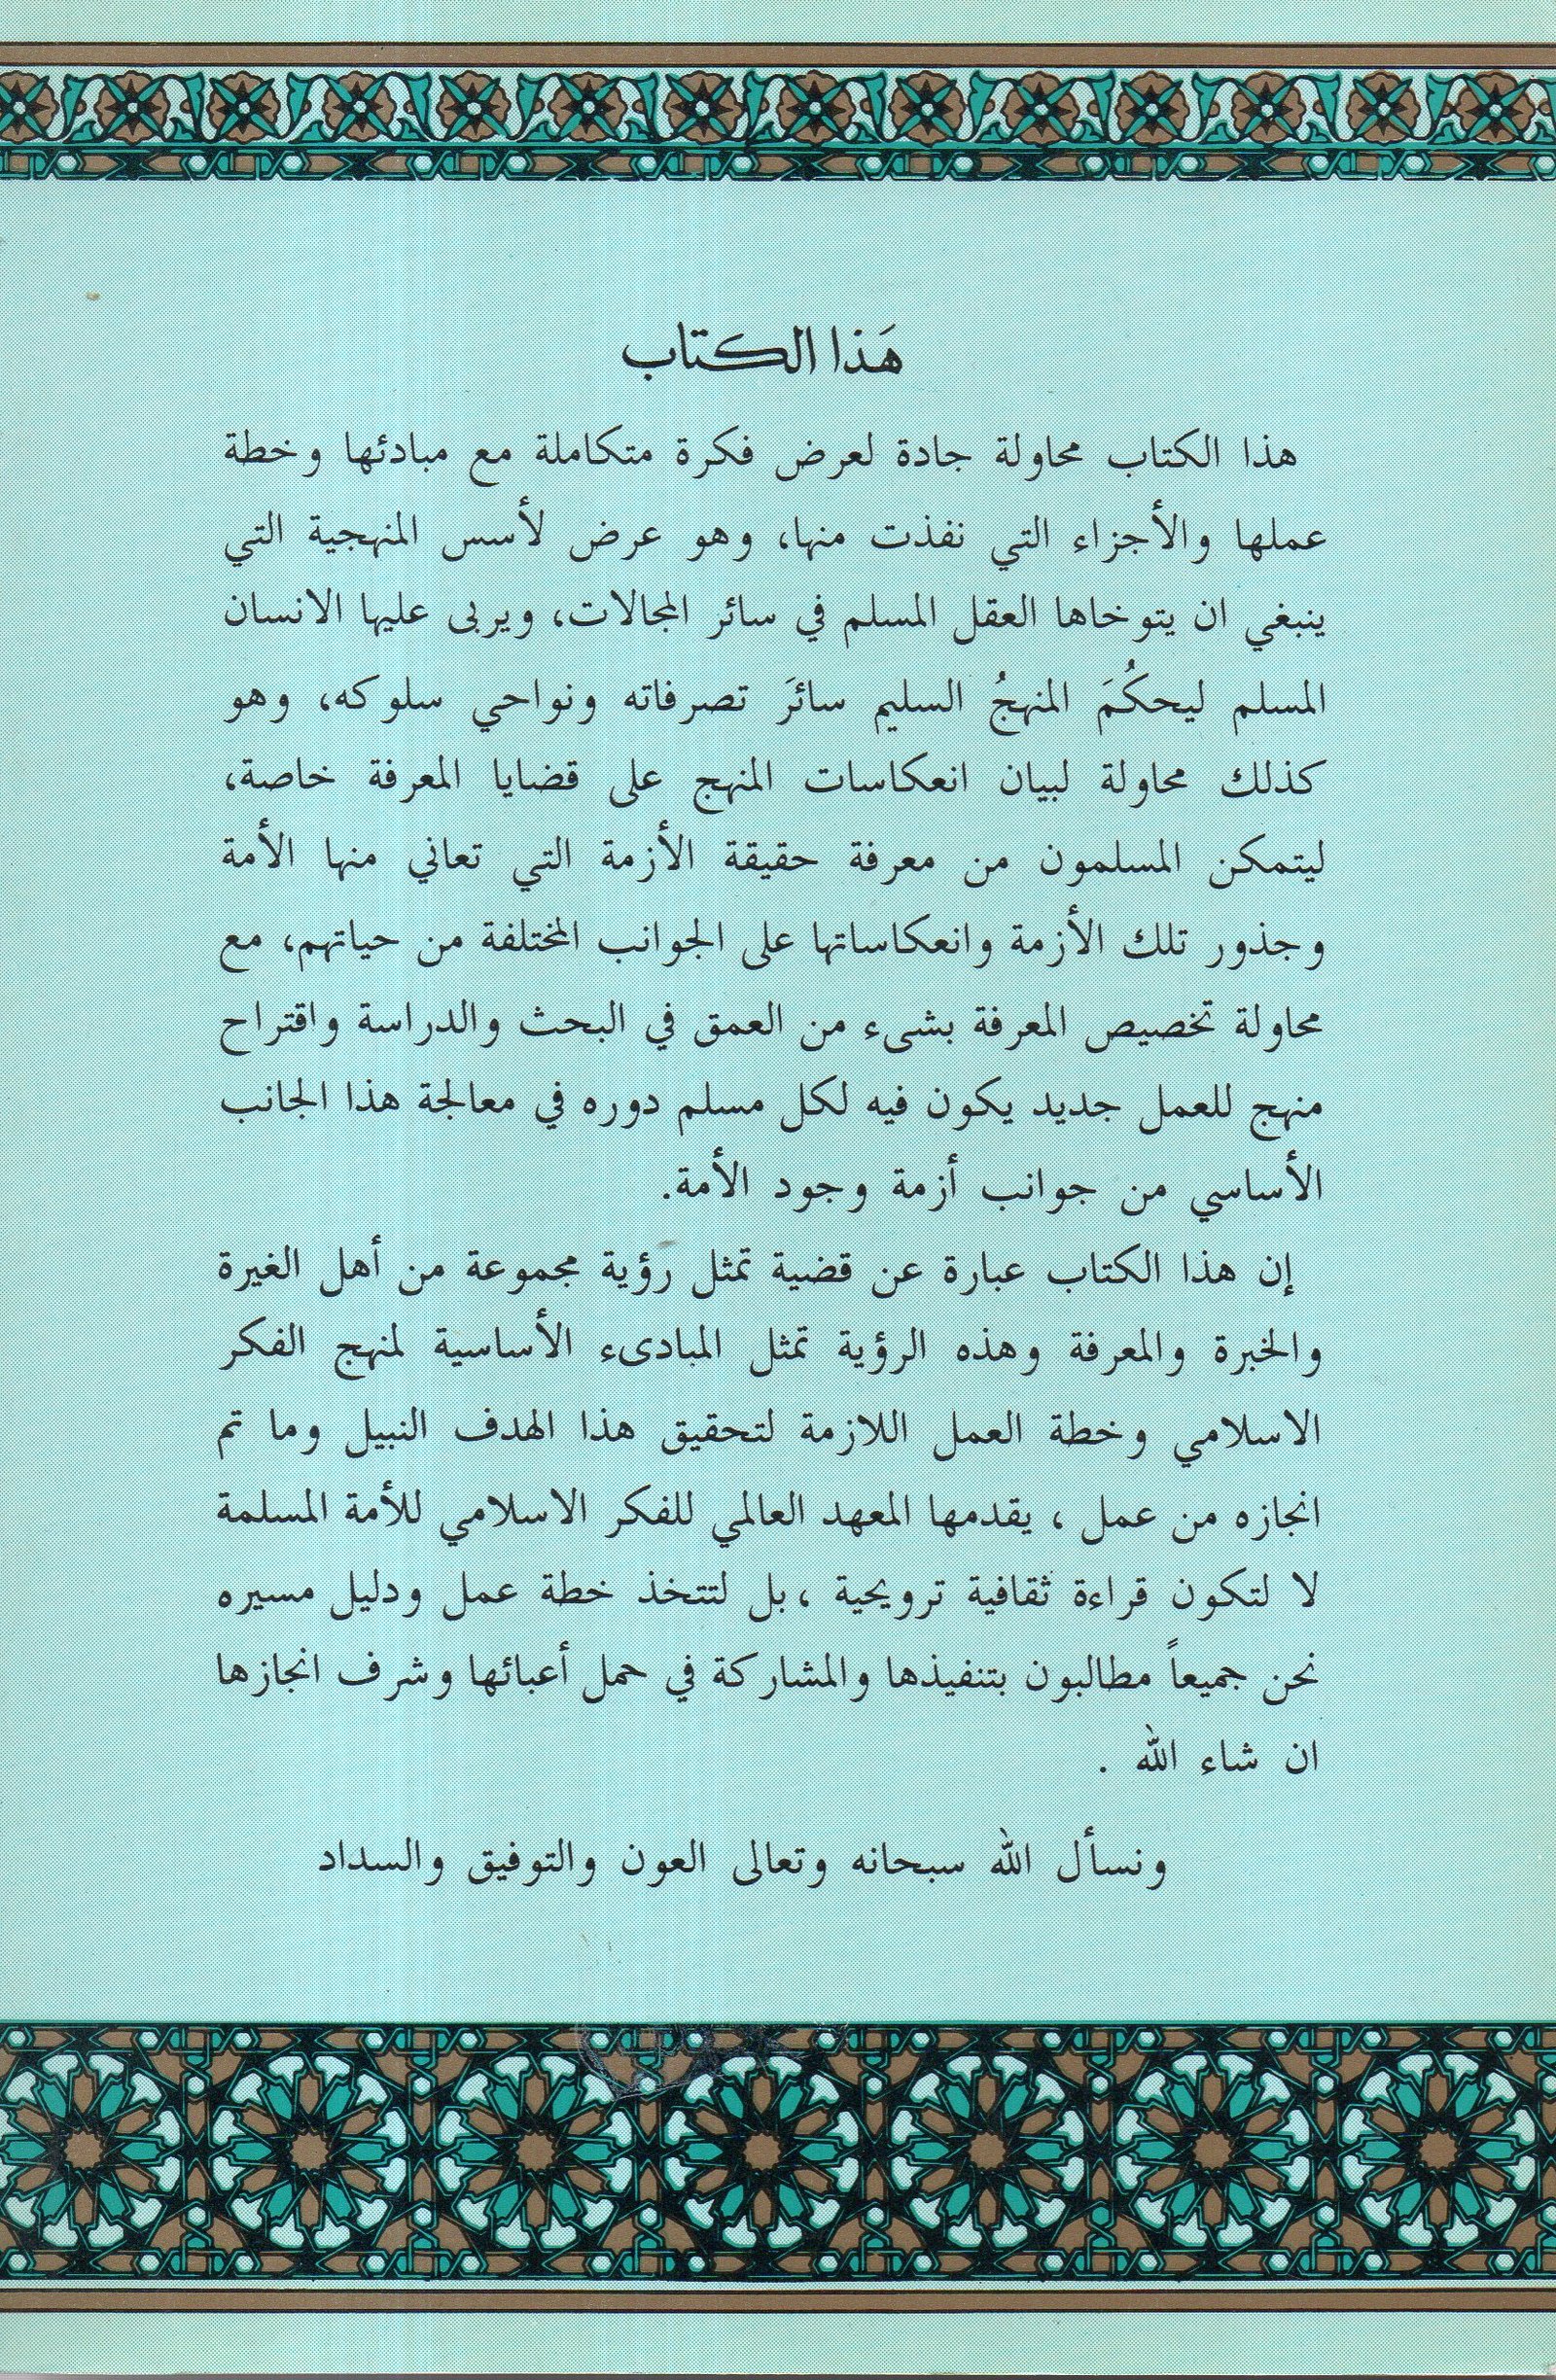 هَذا الكتاب
هذا الكتاب محاولة جادة لعرض فكرة متكاملة مع مبادئها وخطة
عملها والأجزاء التي نفذت منها، وهو عرض لأسس المنهجية التي
ينبغي ان يتوخاها العقل المسلم في سائر المجالات، ويربى عليها الانسان
المسلم ليحكُمَ المنهجُ السليم سائرَ تصرفاته ونواحي سلوكه، وهو
كذلك محاولة لبيان انعكاسات المنهج على قضايا المعرفة خاصة،
ليتمكن المسلمون من معرفة حقيقة الأزمة التي تعاني منها الأمة
وجذور تلك الأزمة وانعكاساتها على الجوانب المختلفة من حياتهم، مع
محاولة تخصيص المعرفة بشىء من العمق في البحث والدراسة واقتراح
منهج للعمل جديد يكون فيه لكل مسلم دوره في معالجة هذا الجانب
الأساسي من جوانب أزمة وجود الأمة.
إن هذا الكتاب عبارة عن قضية تمثل رؤية مجموعة من أهل الغيرة
والخبرة والمعرفة وهذه الرؤية تمثل المبادىء الأساسية لمنهج الفكر
الاسلامي وخطة العمل اللازمة لتحقيق هذا الهدف النبيل وما تم
انجازه من عمل ، يقدمها المعهد العالمي للفكر الاسلامي للأمة المسلمة
لا لتكون قراءة ثقافية ترويحية ، بل لتتخذ خطة عمل ودليل مسيره
نحن جميعاً مطالبون بتنفيذها والمشاركة في حمل أعبائها وشرف انجازها
ان شاء الله .
ونسأل الله سبحانه وتعالى العون والتوفيق والسداد